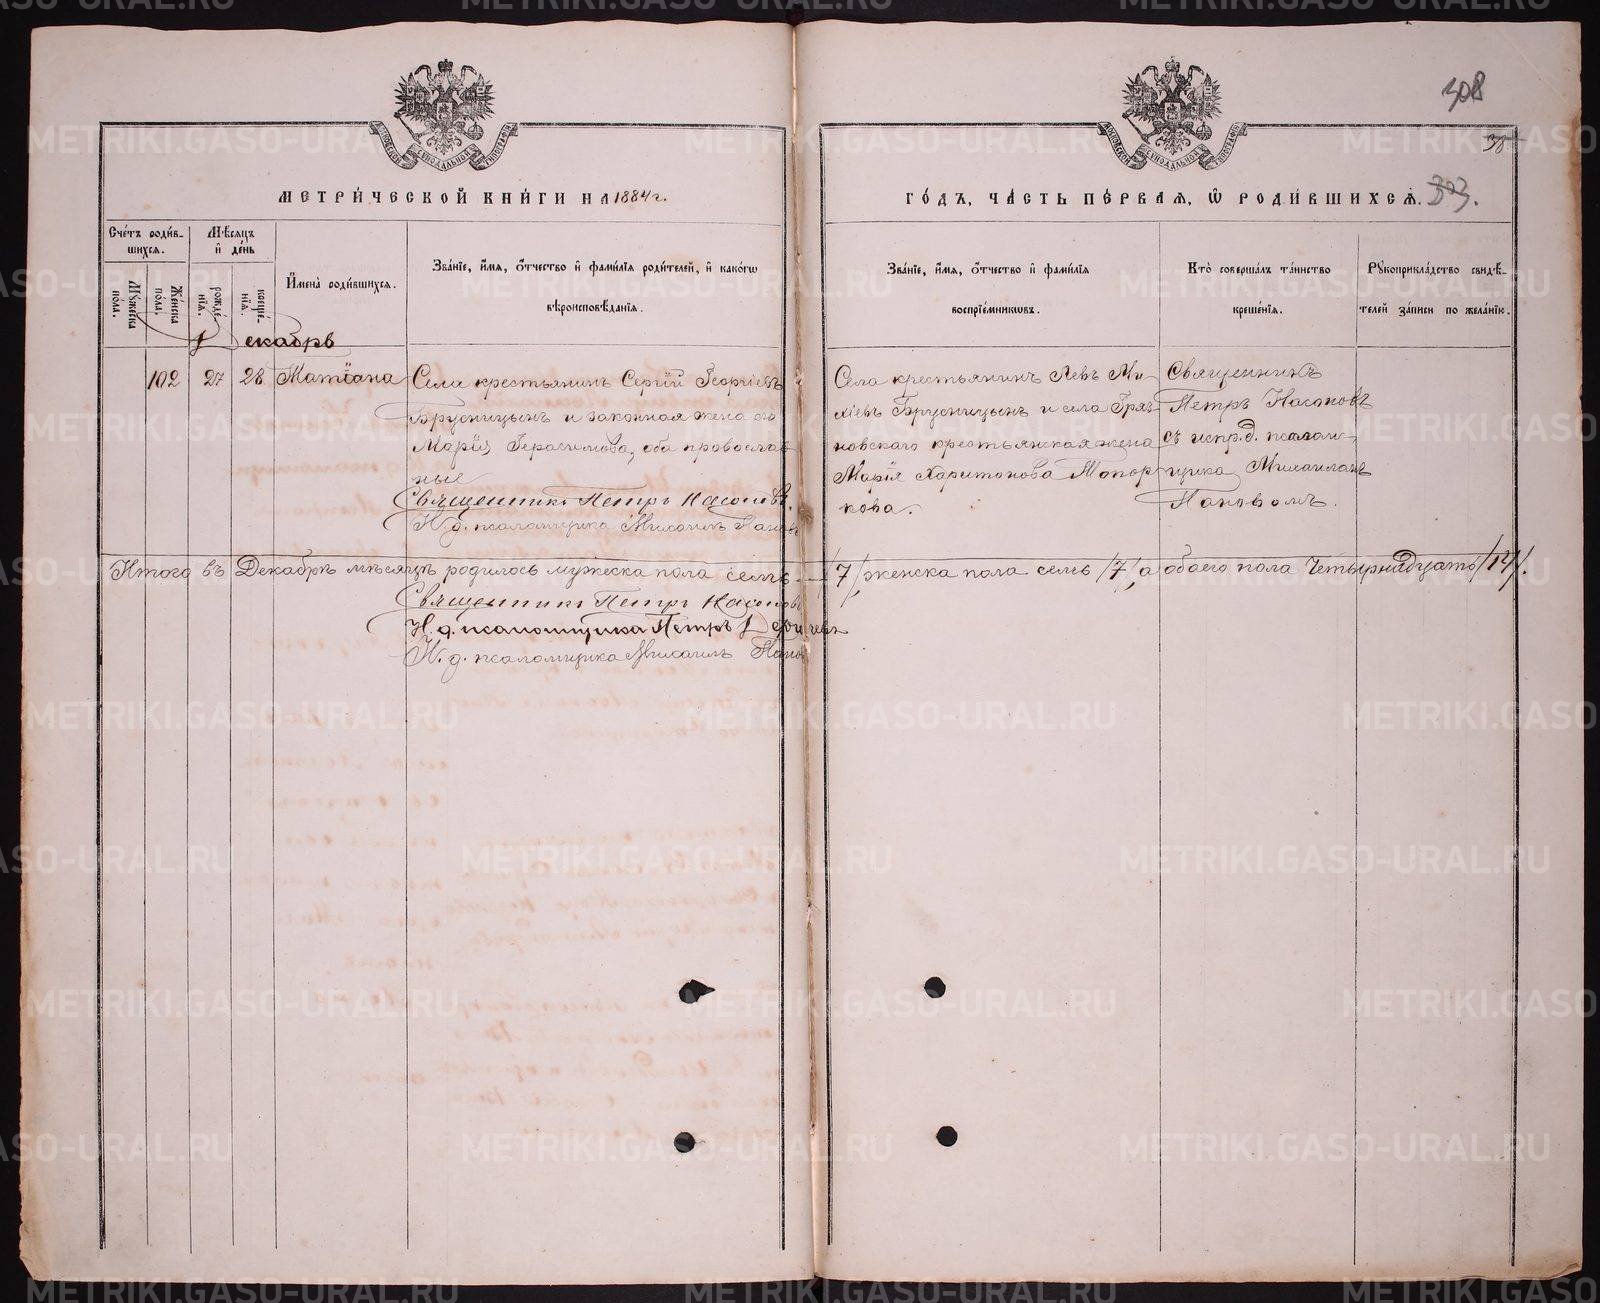 308
38
МЕТРИЧЕСКОЙ КНИГИ НА 1884 г.
ГОДЪ, ЧАСТЬ ПЕРВАЯ, Ѿ РОДИВШИХСЯ.
303.
Счетъ родив-
шихся.
Мѣсяцъ
и день
Мужеска
пола.
Женска
пола.
рожде-
нія.
креще-
нія.
Имена родившихся.
Званіе, имя, отчество и фамилія родителей, и какогѡ
вѣроисповѣданія.
Званіе, имя, отчество и фамилія
воспріемникѡвъ.
Кто совершалъ таинство
крещенія.
Рукоприкладство свидѣ-
телей записи по желанію.
Декабрь
102 27 28 Татіана
Села крестьянинъ Сергій Георгіевъ
Брусницынъ и законная жена его
Марія Герасимова, оба провослав-
ные
Священникъ Петръ Насоновъ.
И. д. псаломщика Михаилъ Пановъ
Села крестьянинъ Левъ Ми-
хіевъ Брусницынъ и села Гряз-
новскаго крестьянская жена
Марія Харитонова Топор-
кова.
Священникъ
Петръ Насоновъ
съ испр. д. псалом-
щика Михаиломъ
Пановомъ.
Итого въ Декабрѣ мѣсяцѣ родилось мужеска пола семь /7/, женска пола семь /7/, а обоего пола Четырнадцать /14/.
Священникъ Петръ Насоновъ
И. д. псаломщика Петръ
И. д. псаломщика Михаилъ Пановъ
METRIKI.GASO-URAL.RU